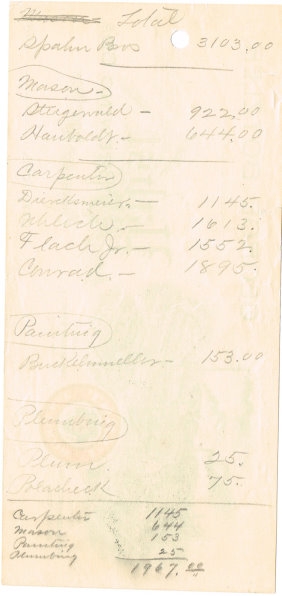 Total
Spahn Bros 3103.00
Mason -
Stegerwald - 922.00
Haubold - 644.00
Carpenter
Dierksmeier - 1145.
Uhlich - 1613.
Flach Jr. - 1552.
Conrad - 1895.
Painting
- 153.00
Plumbing
Plum. 25.
Polacheck 75.
Carpenter 1145
Mason 644
Painting 153
Plumbing 25
1967.00